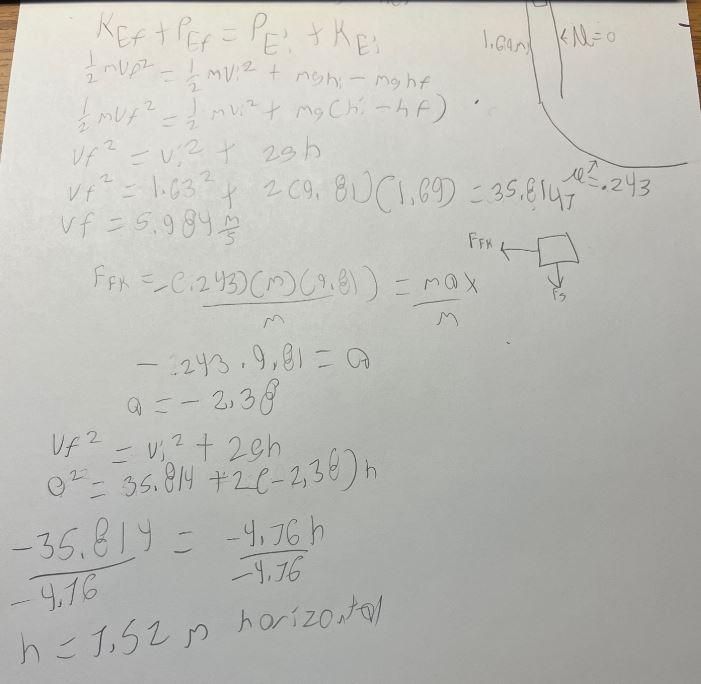 KEf + PEf = PEi + KEi
1/2 mVf² = 1/2 mVi² + mghi - mghf
1/2 mVf² = 1/2 mVi² + mg(hi - hf)
Vf² = Vi² + 2gh
Vf² = 1.63² + 2(9.81)(1.69) = 35.814
Vf = 5.984 m/s
1.69m
←μ=0
μ=.243
FFK
Fg
FFK = -(.243)(m)(9.81) / m = max / m
-.243 · 9.81 = a
a = -2.38
Vf² = Vi² + 2gh
0² = 35.814 + 2(-2.38)h
-35.814 / -4.76 = -4.76h / -4.76
h = 7.52 m horizontal